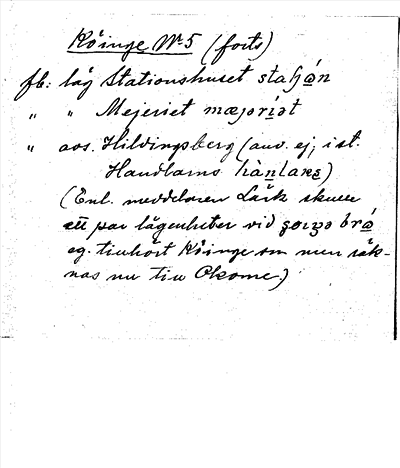 Köinge Nr 5 (forts)
fb: låg Stationshuset
" " Mejeriet mæjəríət
" avs. Hildingsberg (anv. ej, i st.
Handlarns hànlarṣ)
(Enl. meddelaren Lärk skulle
ett par lägenheter vid brǻ
eg. tillhört Köinge sn men räk-
nas nu till Okome.)